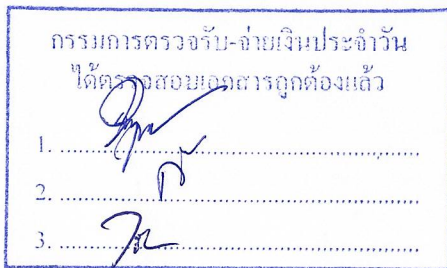 กรรมการตรวจรับ-จ่ายเงินประจำวัน
ได้ตรวจสอบเอกสารถูกต้องแล้ว
1. ................................................
2. ................................................
3. ................................................